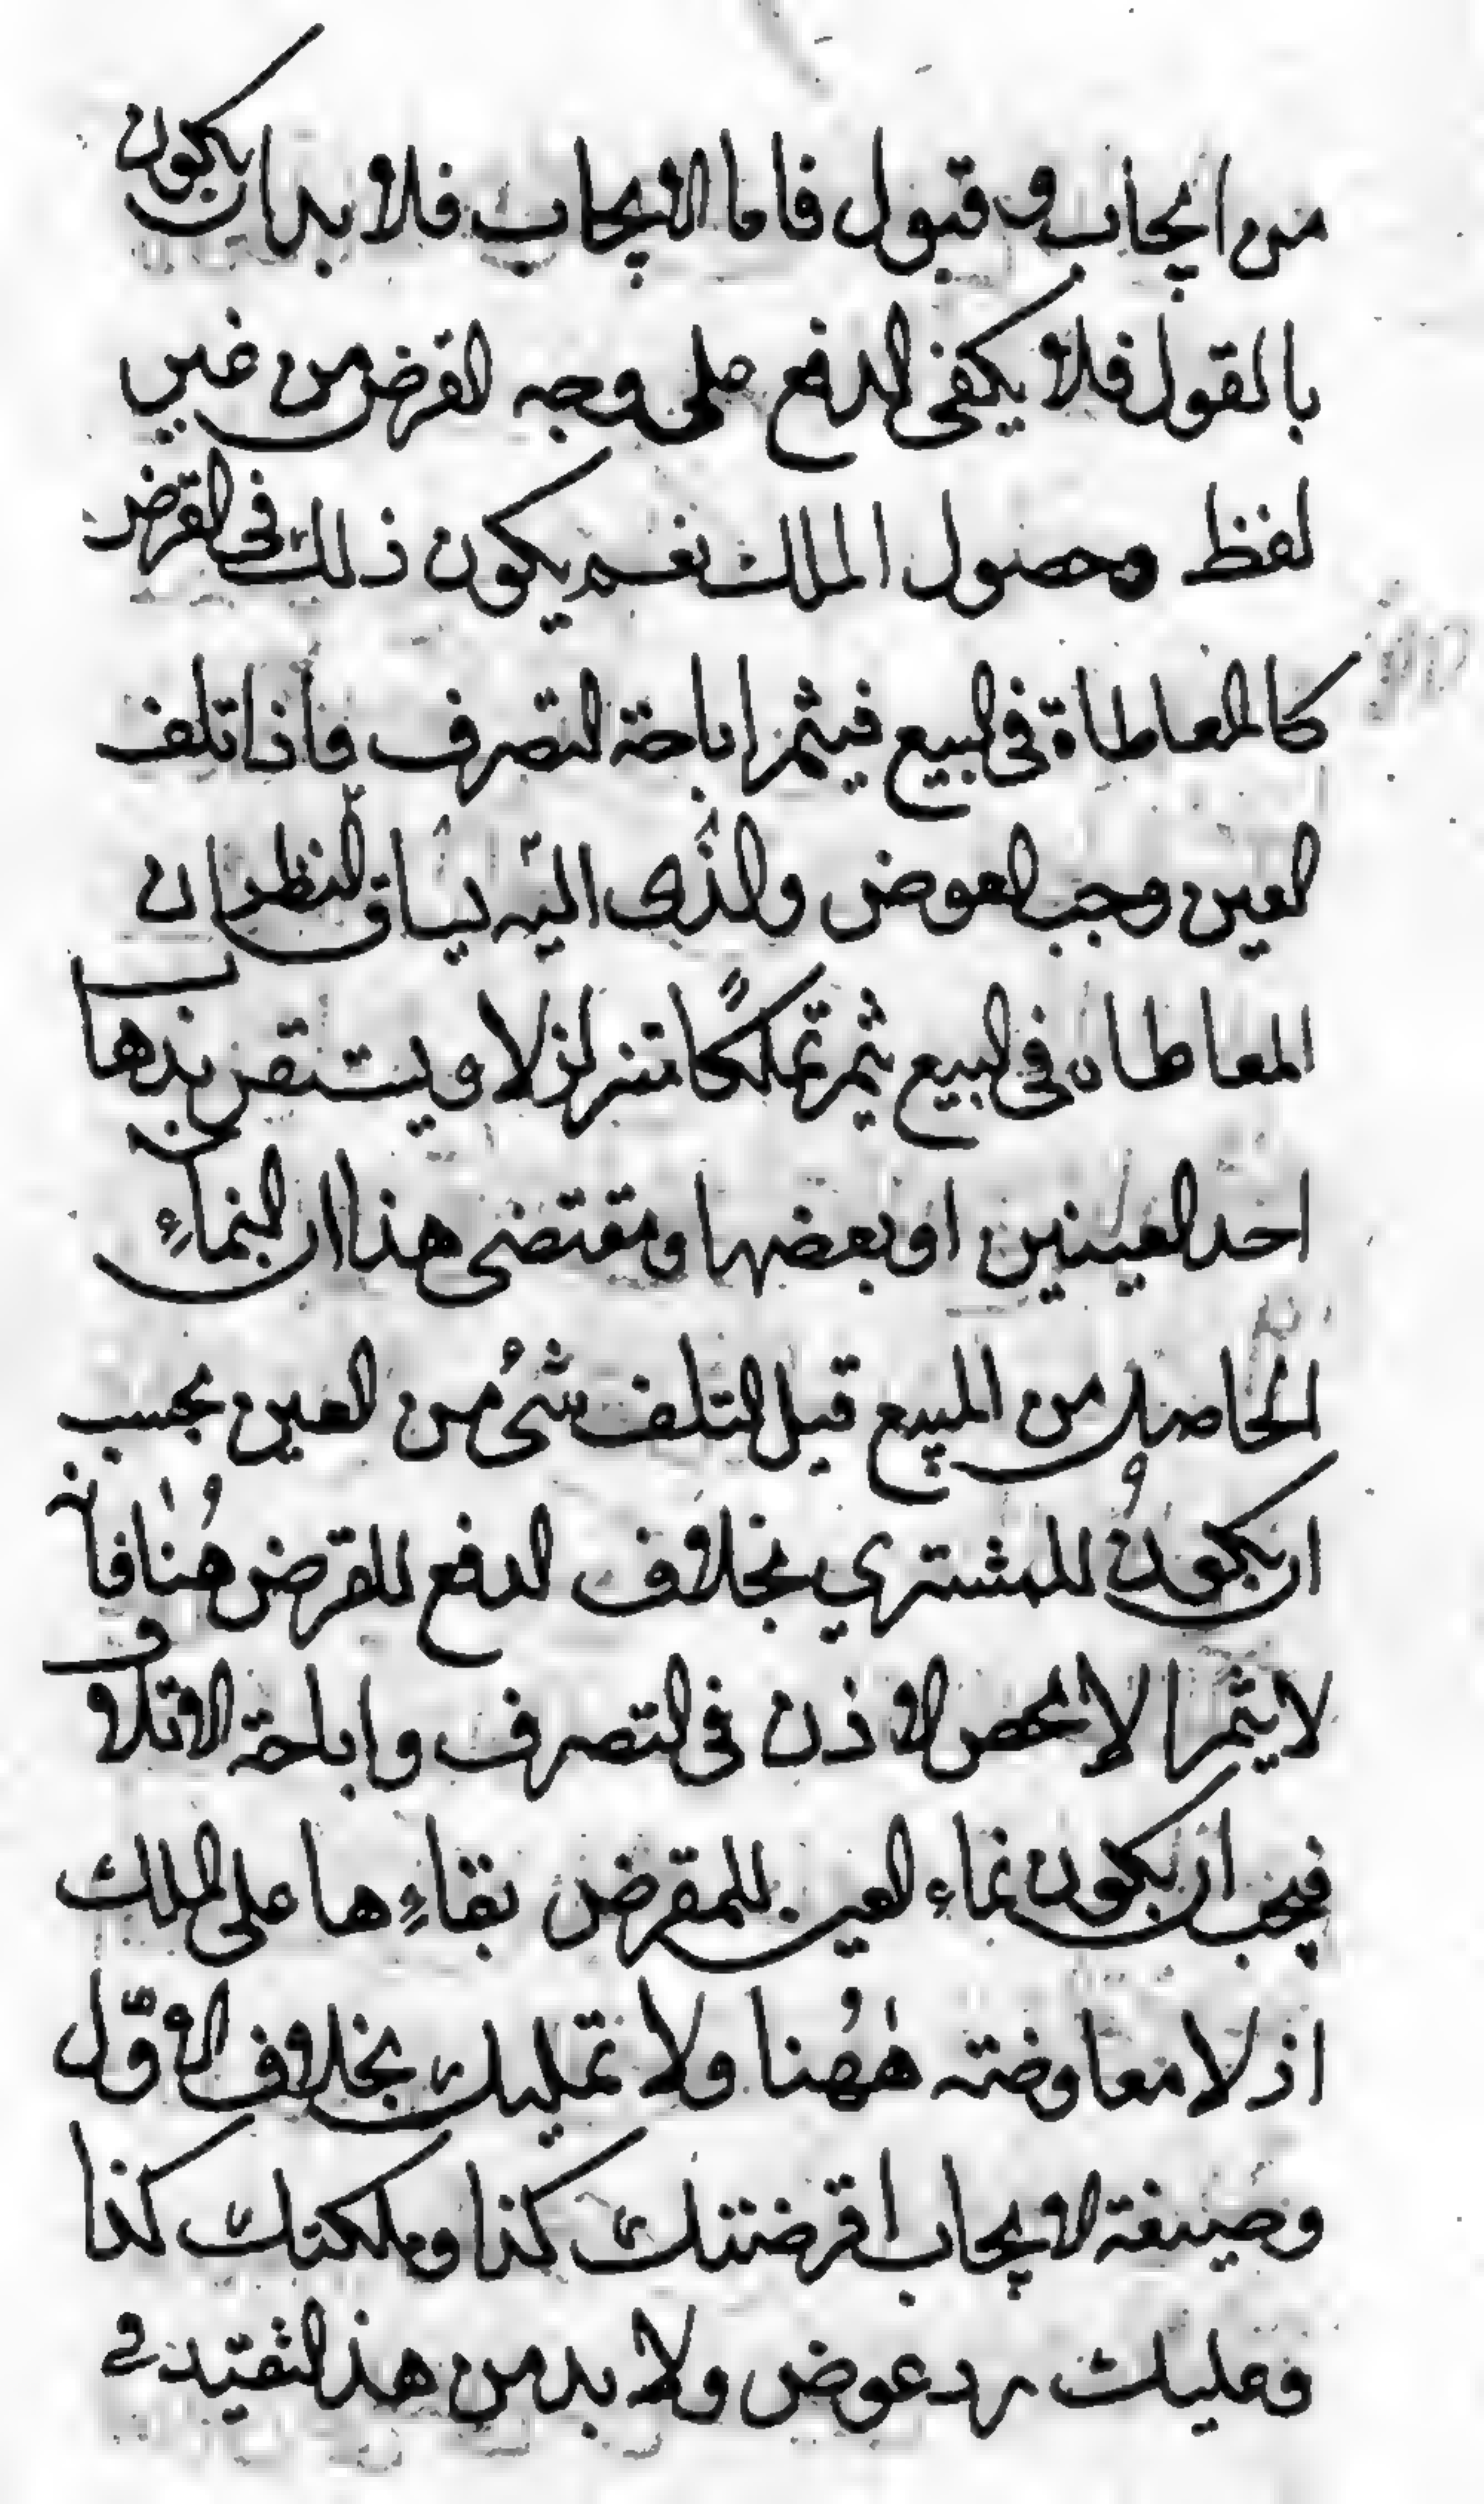 من ايجاب و قبول فاما الايجاب فلا بد ان يكون
بالقول فلا يكفى الدفع على وجه القرض من غير
لفظ وحصول الملك نعم يكون ذلك فى القرض
كالمعاطاة فى البيع فيثمر اباحة التصرف فاذا تلف
العين وجب العوض والذى اليه يساق النظر ان
المعاطاه فى البيع ثمر تملكًا متزلزلا و يستقر بذهاب
احد العينين او بعضها ومقتضى هذا ان النماءِ
الحاصل من المبيع قبل التلف شئ من العين بحسب
ان يكونُ للمشتري بخلاف الدفع للقرض هُنا فانه
لا يثمر الا محض الاذن فى التصرف واباحة الاتلاف
فيجب ان يكون نماء العين للمقرض بقاءِها على الملك
اذ لا معاوضته هٰهُنا ولا تمليك بخلاف الأوّل
وصيغة الايجاب اقرضتك كذا وملكتك كذا
وعليك رد عوض ولا بد من هذ التقيد فى